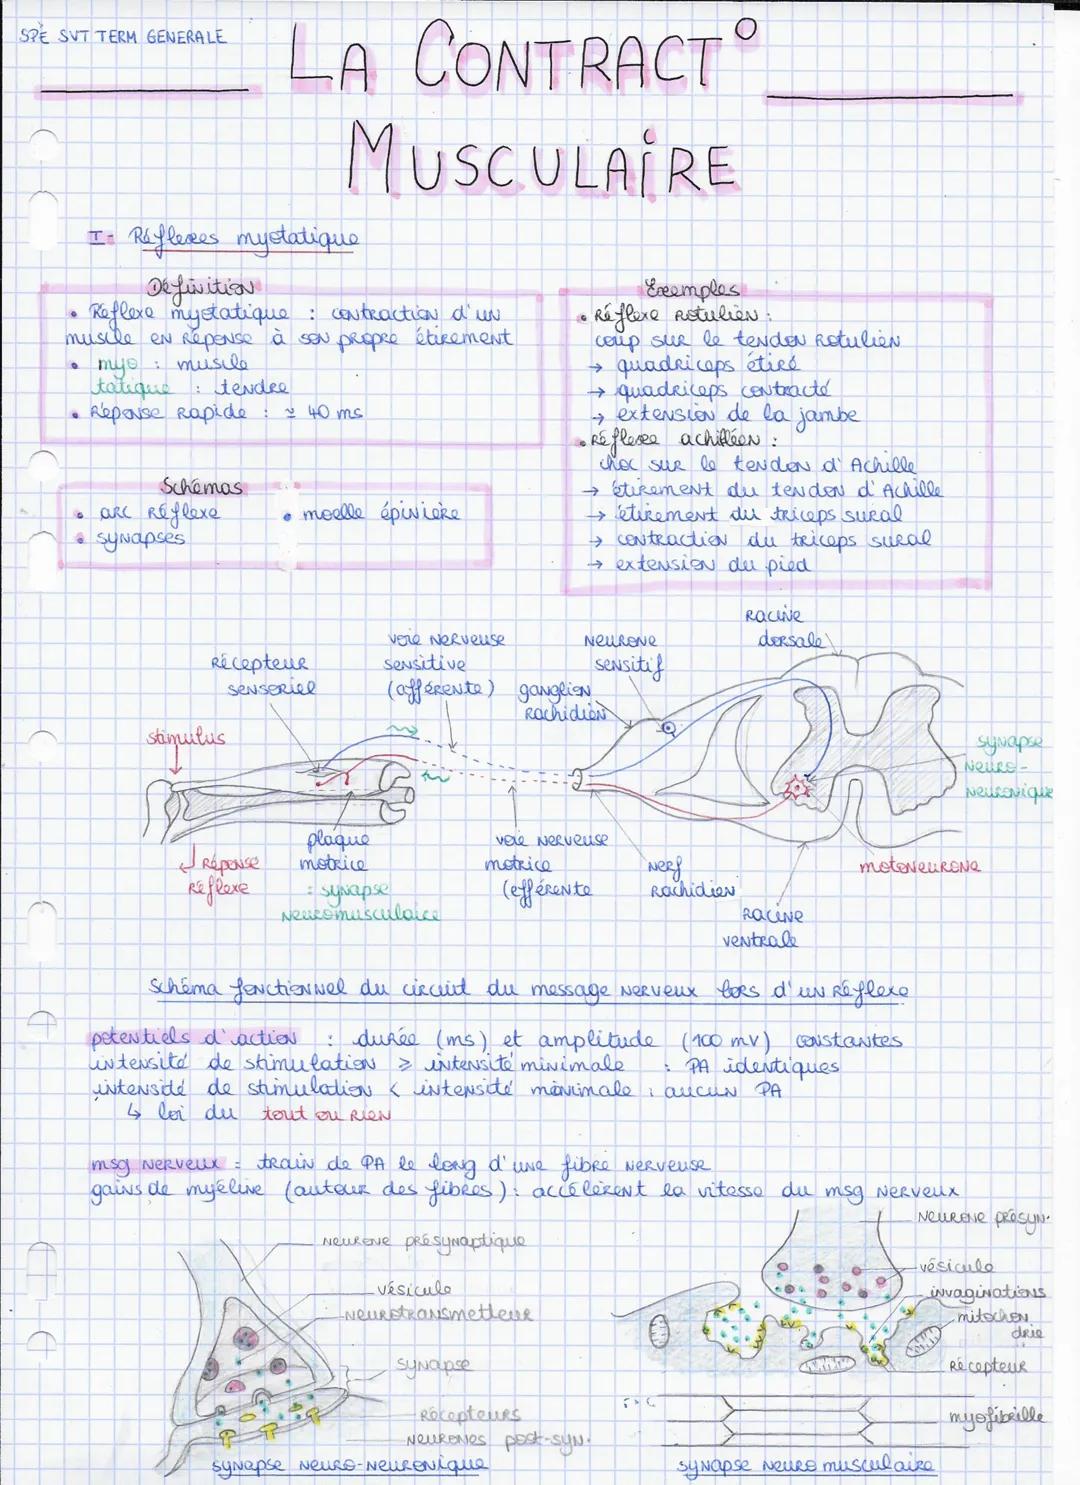 SPÉ SVT TERM GENERALE
LA CONTRACT°
MUSCULAIRE
I- Réflexes myotatique
Définition
• Réflexe myotatique : contraction d'un
muscle en réponse à son propre étirement
• myo : muscle
tatique : tendre
• Réponse rapide : ≃ 40 ms
Exemples
• Réflexe rotulien :
coup sur le tendon rotulien
→ quadriceps étiré
→ quadriceps contracté
→ extension de la jambe
• Réflexe achilléen :
choc sur le tendon d'Achille
→ étirement du tendon d'Achille
→ étirement du triceps sural
→ contraction du triceps sural
→ extension du pied
Schémas
• arc réflexe
• moelle épinière
• synapses
récepteur
sensoriel
voie nerveuse
sensitive
(afférente)
neurone
sensitif
ganglion
rachidien
racine
dorsale
stimulus
synapse
neuro-
neuronique
↲ réponse
réflexe
plaque
motrice
: synapse
neuromusculaire
voie nerveuse
motrice
(efférente
nerf
rachidien
motoneurone
racine
ventrale
Schéma fonctionnel du circuit du message nerveux lors d'un réflexe
potentiels d'action : durée (ms) et amplitude (100 mV) constantes
intensité de stimulation ≥ intensité minimale : PA identiques
intensité de stimulation < intensité minimale : aucun PA
↳ loi du tout ou rien
msg nerveux = train de PA le long d'une fibre nerveuse
gains de myéline (autour des fibres) : accélèrent la vitesse du msg nerveux
neurone présynaptique
vésicule
neurotransmetteur
synapse
récepteurs
neurones post-syn.
synapse neuro-neuronique
neurone présyn.
vésicule
invaginations
mitochon
drie
récepteur
myofibrille
synapse neuromusculaire